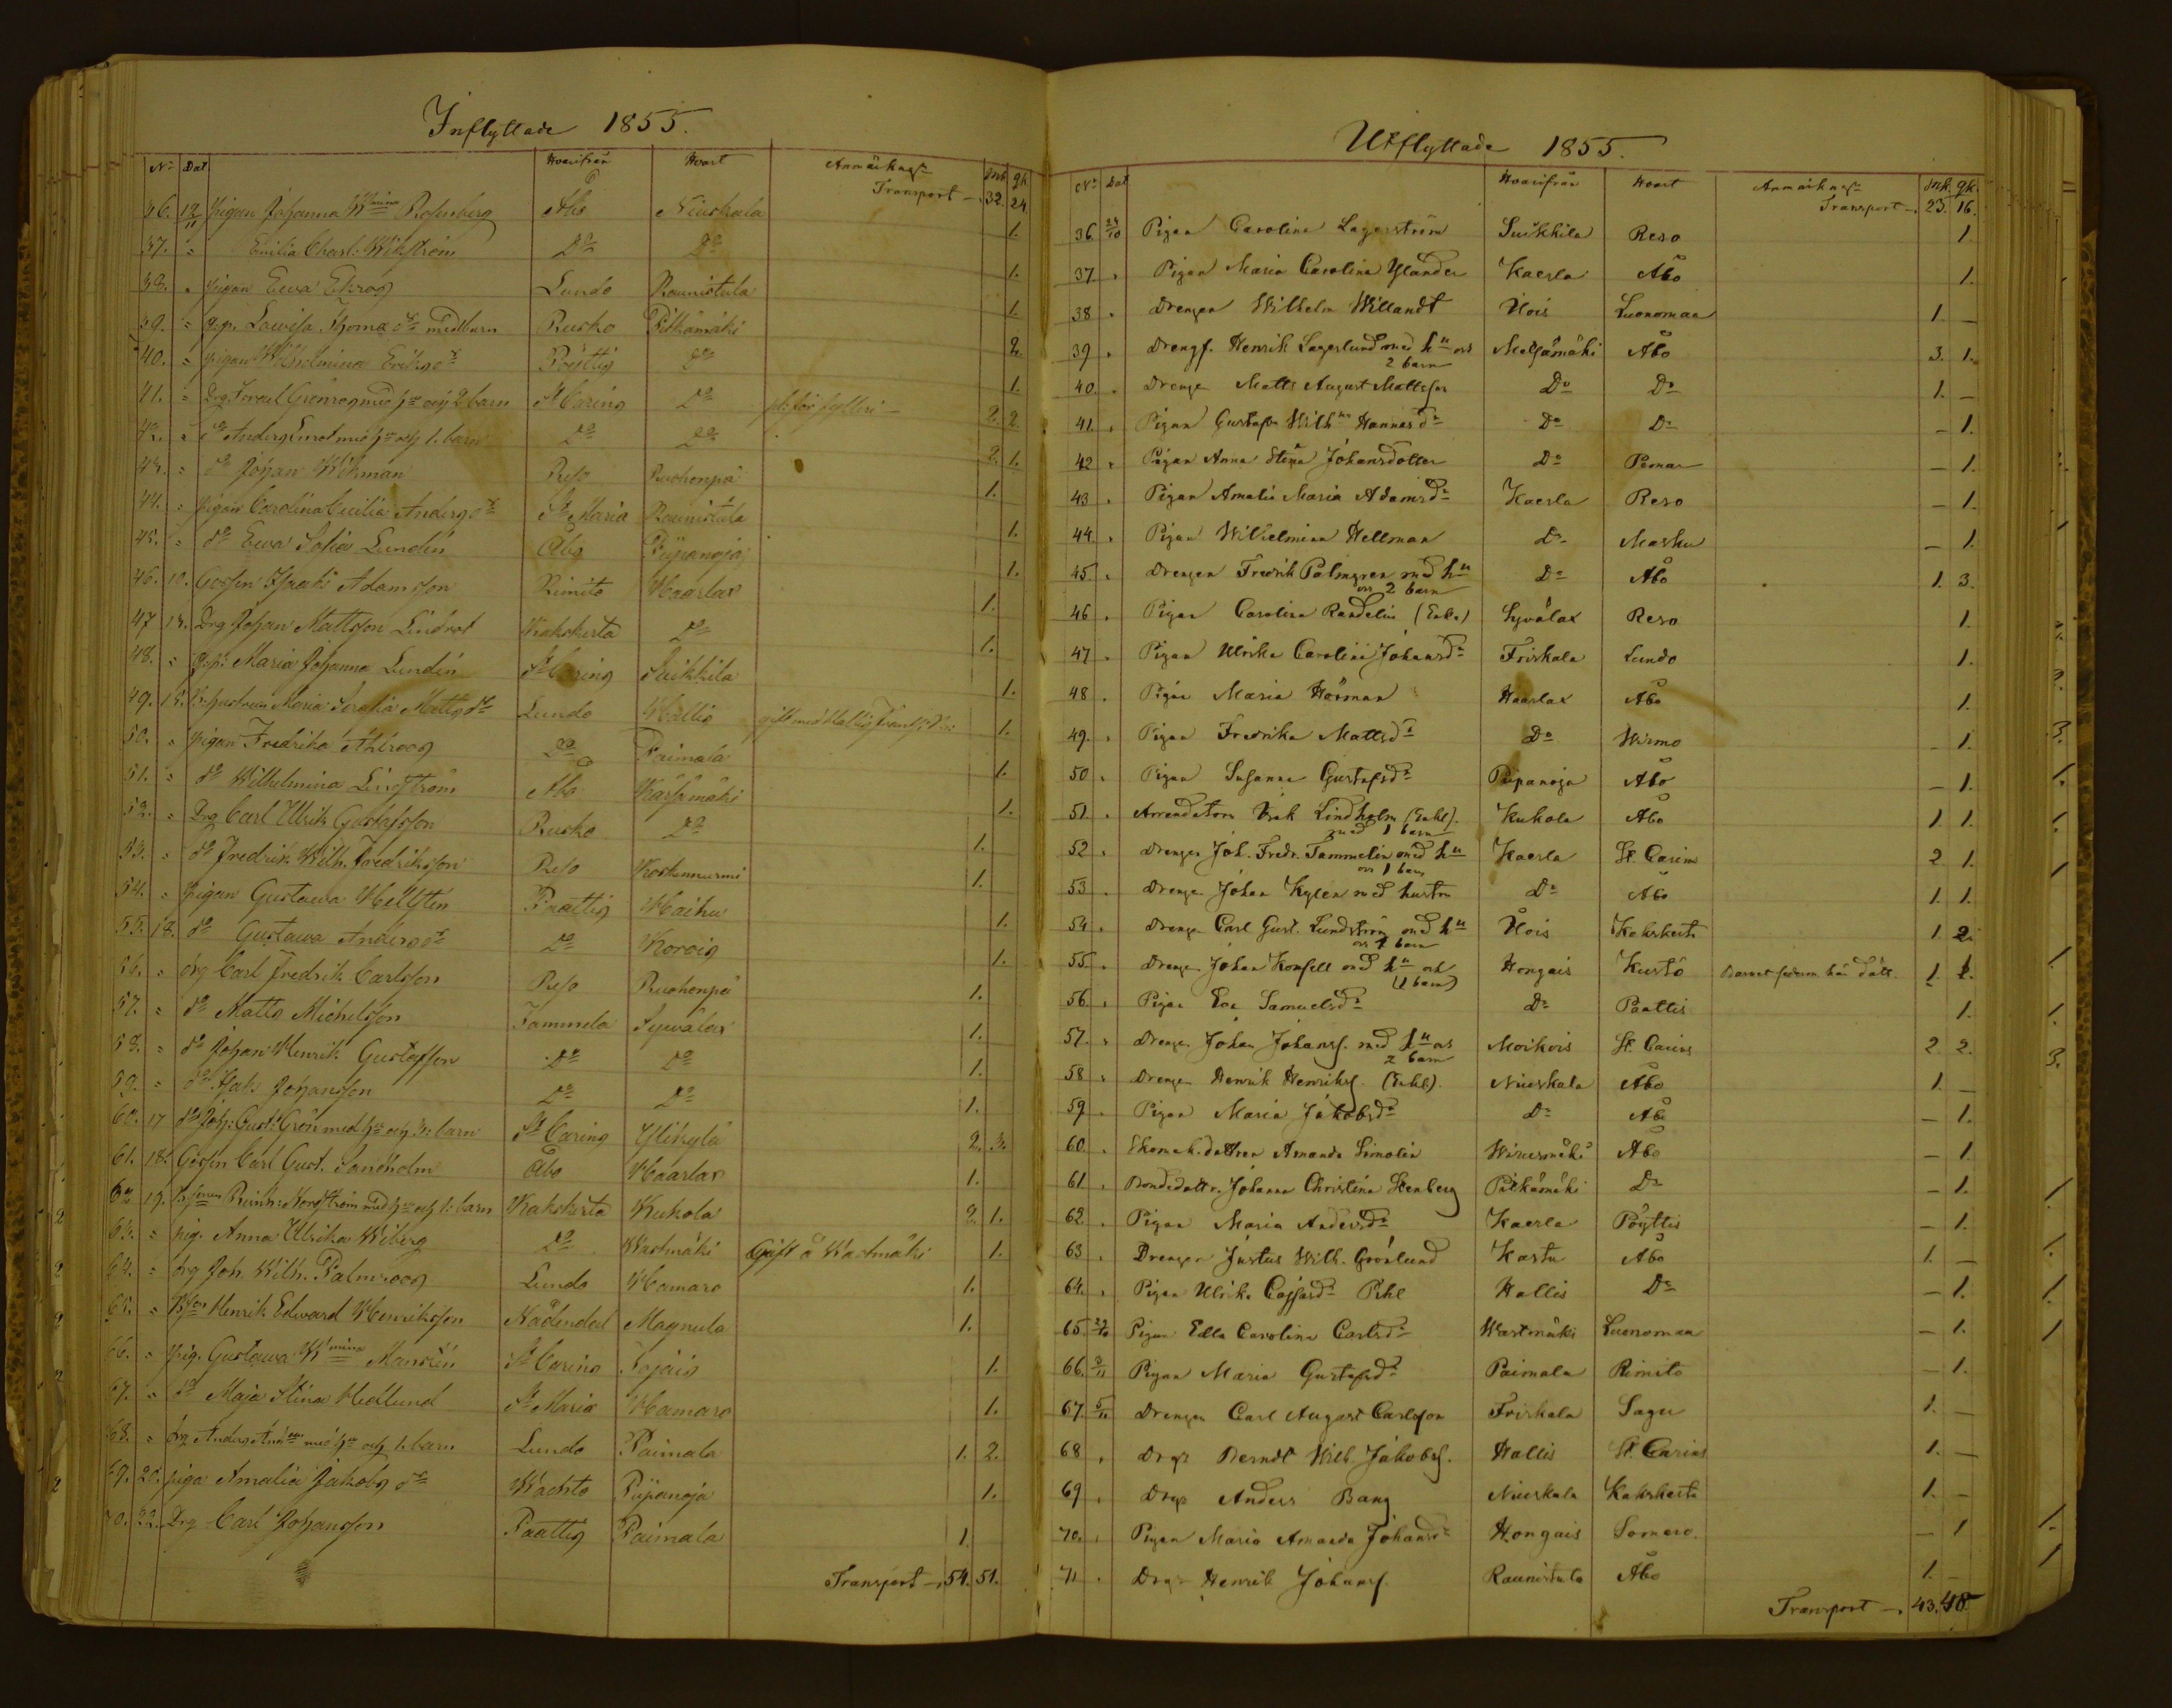 Inflyttade 1855.
No Dat. Hvarifrån Hvart Anmärkngr mk. qk.
Transport — 32. 24.
36. 12/11 pigan Johanna Wmina Rosenberg Åbo Niuskala 1.
37. " Emilia Charl: Wikström Do Do 1.
38. " pigan Ewa Ekroos Lundo Raunistula 1.
39. " Lowisa Thomasdr med barn Rusko Pitkämäki 2.
40. " pigan Wilhelmina Eriksdr Pöittis Do 1.
41. " Drg. Israel Grönroos med hu och 2 barn St Carins Do 2. 2.
42. " do Anders Enrot med hu och 1. barn Do Do 2. 1.
43. " do Johan Wikman Reso Ruohonpä 1.
44. " pigan Carolina Cecilia Andersdr St Maria Raunistula 1.
45. " do Ewa Sofia Lundén Åbo Piipanoja 1.
46. 10. Gossen Isaak Adamsson Rimito Haarlax 1.
47 13. Drg Johan Mattsson Lindrot Kakskerta Do 1.
48. " Maria Johanna Lundén St Carins Suikkila 1.
49. 15. hustrun Maria Serafia Mattsdr Lundo Hallis gift med Hallis 1.
50. " pigan Fredrika Ahlroos Do Paimala 1.
51. " do Wilhelmina Lindström Åbo Kärsämäki 1.
52. " Drg Carl Ulrik Gustafsson Rusko Do 1.
53. " do Fredrik Wilh. Fredriksson Reso Koskennurmi 1.
54. " pigan Gustawa Hellstén Paattis Haihu 1.
55. 18. do Gustawa Andersdr Do Korois 1.
56. " drg Carl Fredrik Carlsson Reso Ruohonpä 1.
57. " do Matts Michelsson Tammela Sywälax 1.
58. " do Johan Henrik Gustafsson Do Do 1.
59. " do Isak Johansson Do Do 1.
60. 17 do Joh: Gust: Grön med hu och 3: barn St Carins Ylikylä 2. 3.
61. 18. Gossen Carl Gust. Sandholm Åbo Haarlax 1.
62 19. Reinh: Nordström med hu och 1: barn Kakskerta Kukola 2. 1.
63. " pig. Anna Ulrika Wiberg Do Wartmäki Gift å Wartmäki 1.
64. " drg Joh Wilh. Palmroos Lundo Hamaro 1.
65. " Henrik Edward Henriksson Nådendal Magnula 1.
66. " pig. Gustawa Wmina Manelin St Carins Tojais 1.
67. " do Maja Stina Hedlund St Maria Hamaro 1.
68. " drg Anders med hu och 1. barn Lundo Paimala 1. 2.
69. 20. piga Amalia Jakobsdr Wachto Piipanoja 1.
70. 22. Drg Carl Johansson Paattis Paimala 1.
Transport — 54. 51.
Utflyttade 1855.
No Dat Hvarifrån Hvart Anmärkngr mk. qk.
Transport — 23. 16.
36. 24/10 Pigan Carolina Lagerström Suikkila Reso 1.
37 " Pigan Maria Carolina Ylander Kaerla Åbo 1.
38 " Drengen Wilhelm Willandt Uois Luonomaa 1. —
39 " Drengf. Henrik Lagerlund med hu och Mälsämäki Åbo 3. 1.
2 barn
40. " Drengen Matts August Mattsson Do Do 1. —
41. " Pigan Gustafva Wilhna Hannasdr Do Do — 1.
42 " Pigan Anna Stina Johansdotter Do Pemar — 1.
43 " Pigan Amalia Maria Adamsdr Kaerla Reso — 1.
44. " Pigan Wilhelmina Hellman Do Masku — 1.
45. " Drengen Fredrik Palmgren med hu Do Åbo 1. 3.
och 2 barn
46 " Pigan Carolina Randelin (Enka) Syvälax Reso 1.
47 " Pigan Ulrika Carolina Johansdr Friskala Lundo 1.
48 " Pigan Maria Hörman Haarlax Åbo 1.
49. " Pigan Fredrika Mattsdr Do Wirmo — 1.
50 " Pigan Susanna Gustafsdr Piipanoja Åbo — 1.
51. " Arrendatorn Isak Lindholm (Enkl). Kukola Åbo 1. 1.
med 1 barn
52 " Drengen Joh. Fredr. Tammelin med hu Kaerla St. Carins 2. 1.
och 1 barn
53 " Drengen Johan Kylen med hustru Do Åbo 1. 1.
54 " Drengen Carl Gust. Lundström med hu Uois Kakskerta 1. 2.
och 1 barn
55. " Drengen Johan Konsell med hu och Hongais Kustö 1. 1.
(1 barn)
56 " Pigan Eva Samuelsdr Do Paattis 1.
57. " Drengen Johan Johanss. med hu och Moikois St. Carins 2. 2.
2 barn
58 " Drengen Henrik Henrikss. (Enkl). Niuskala Åbo 1. —
59 " Pigan Maria Jakobsdr Do Åbo — 1.
60. " Skomak. dottren Amanda Limolin Wiuesmäki Åbo — 1.
61. " Bondedottr. Johanna Christina Stenberg Pitkämäki Do — 1.
62. " Pigan Maria Andersdr Kaerla Pöyttis — 1.
63 " Drengen Justus Wilh. Grönlund Kastu Åbo 1. —
64. " Pigan Ulrika Cajsasdr Pihl Hallis Do — 1.
65 Pigan Edla Carolina Carlsdr Wartmäki Luonomaa — 1.
66. Pigan Maria Gustafsdr Paimala Rimito — 1.
67. 5/11 Drengen Carl August Carlsson Friskala Sagu 1. —
68 " Drgn Berndt Wilh. Jakobss. Hallis St. Carins 1. —
69 " Drgn Anders Bang Niuskala Kakskerta 1. —
70. " Pigan Maria Amanda Johansdr Hongais Somero — 1
71 " Drgn Henrik Johanss. Raunistula Åbo 1. —
Transport — 43. 48.